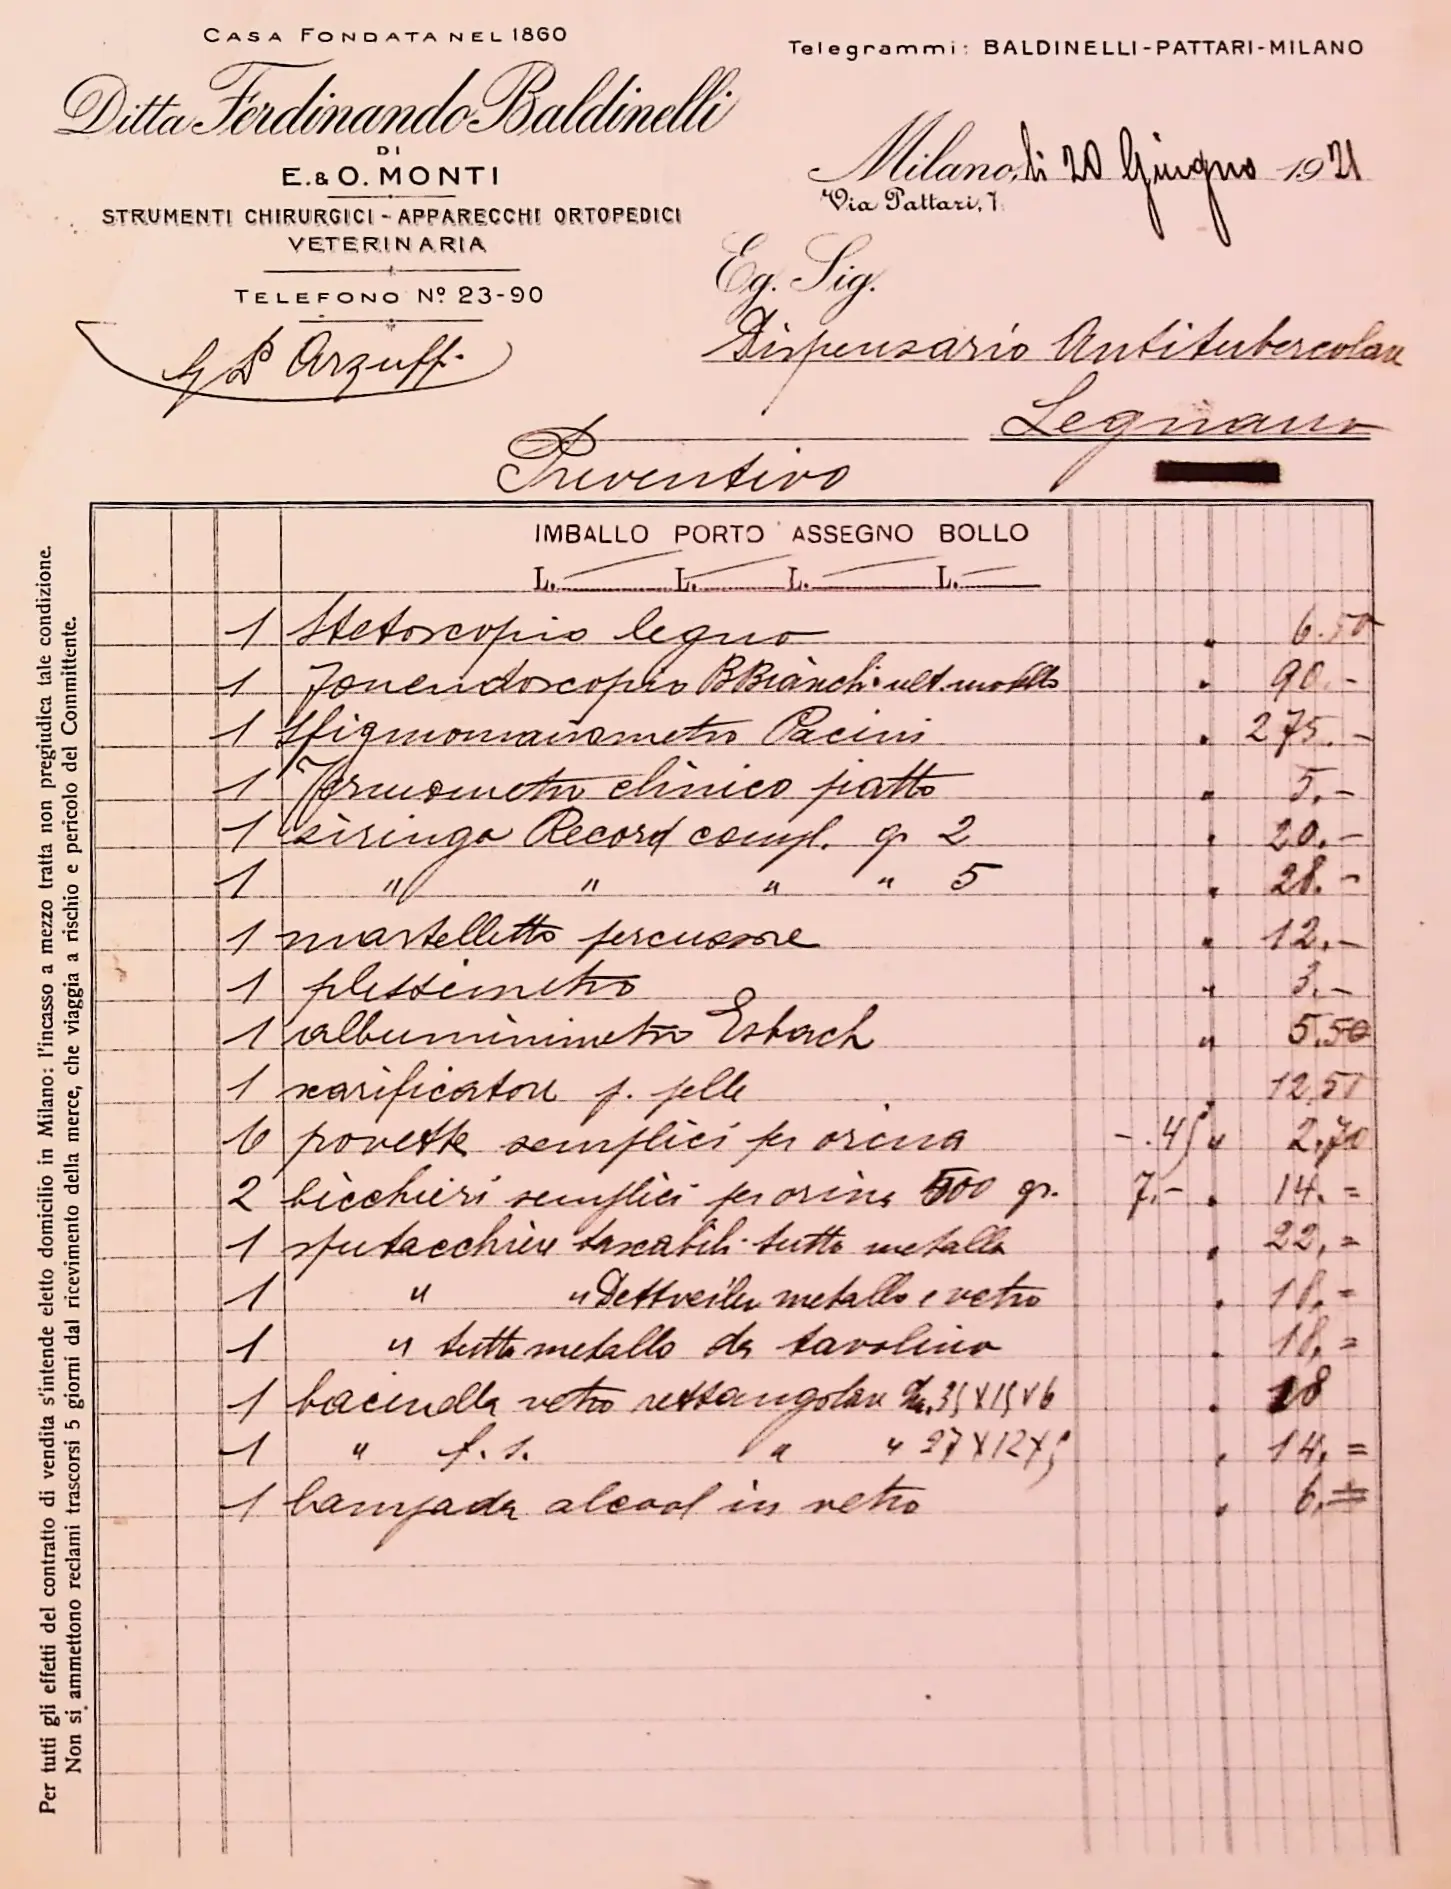 CASA FONDATA NEL 1860
Telegrammi: BALDINELLI-PATTARI-MILANO
Ditta Ferdinando Baldinelli
DI
E. & O. MONTI
STRUMENTI CHIRURGICI - APPARECCHI ORTOPEDICI
VETERINARIA
TELEFONO Nº 23-90
Milano, li 20 Giugno 1921
Via Pattari, 7.
Eg. Sig.
Dispensario Antitubercolare
Legnano
Arzuffi
Preventivo
IMBALLO PORTO ASSEGNO BOLLO
L. L. L. L.
1 Stetoscopio legno " 6.50
1 Fonendoscopio B Bianchi ult. modello " 90.-
1 Sfigmomanometro Pacini " 275.-
1 Termometro clinico piatto " 5.-
1 siringa Record compl. gr 2 " 20.-
1 " " " " 5 " 28.-
1 martelletto percussore " 12.-
1 plessimetro " 3.-
1 albuminimetro Esbach " 5.50
1 scarificatore p. pelle " 12.50
6 provette semplici per orina -.45 " 2.70
2 bicchieri semplici per orina 500 gr. 7.- " 14.=
1 sputacchiere tascabili tutto metallo " 22.=
1 " " Dettveiler metallo e vetro " 18.=
1 " tutto metallo da tavolino " 18.=
1 bacinella vetro rettangolare 35 X 15 X 6 " 18
1 " f. s. " " 27 X 12 X 5 " 14.=
1 lampada alcool in vetro " 6.=
Per tutti gli effetti del contratto di vendita s'intende eletto domicilio in Milano: l'incasso a mezzo tratta non pregiudica tale condizione.
Non si ammettono reclami trascorsi 5 giorni dal ricevimento della merce, che viaggia a rischio e pericolo del Committente.